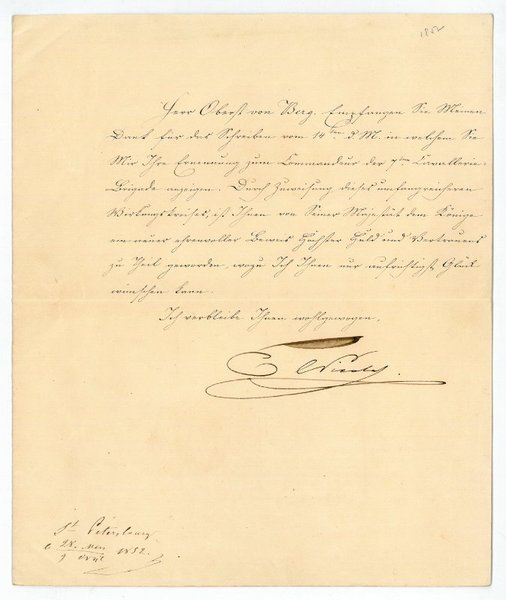 1852
Herr Oberst von Berg. Empfangen Sie Meinen
Dank für das Schreiben vom 14ten d. M. in welchem Sie
Mir Ihre Ernennung zum Commandeur der 7ten Cavallerie-
Brigade anzeigen. Durch Zuweisung dieses umfangreicheren
Wirkungskreises, ist Ihnen von Seiner Majestät dem Könige
ein neuer ehrenvoller Beweis Höchster Huld und Vertrauens
zu Theil geworden, wozu Ich Ihnen nur aufrichtigst Glück
wünschen kann.
Ich verbleibe Ihnen wohlgewogen.
St Petersburg
1852.